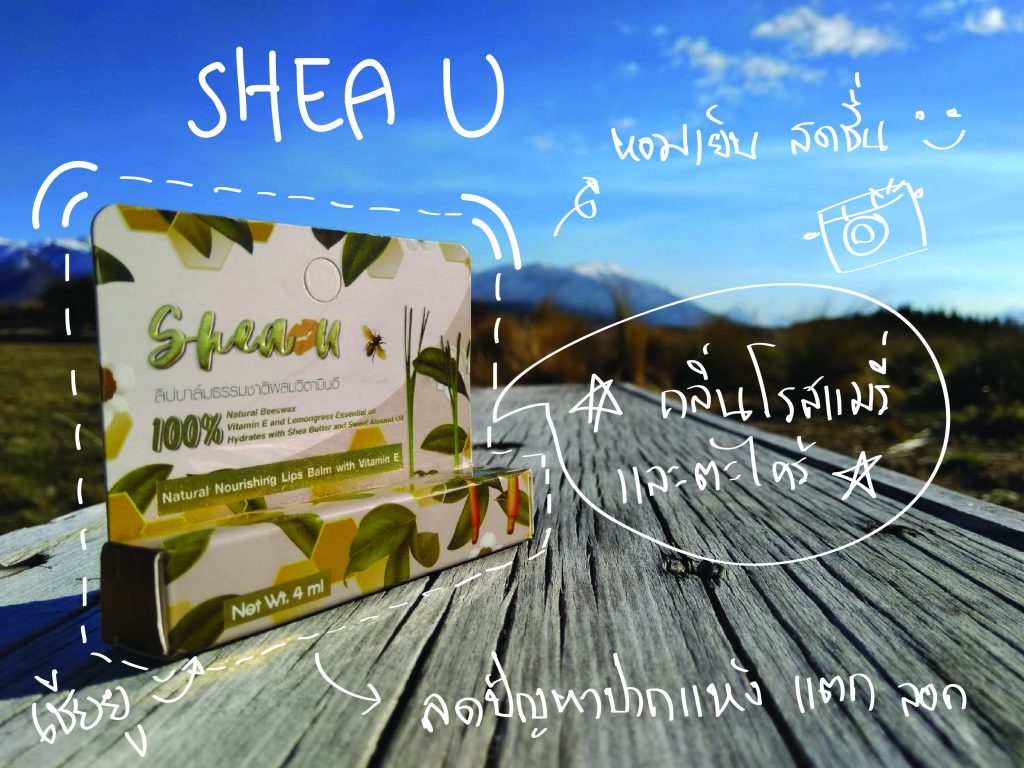 SHEA U
หอมเย็น สดชื่น
Shea U
ลิปบาล์มธรรมชาติผสมวิตามินอี
100%
Natural Beeswax
Vitamin E and Lemongrass Essential oil
Hydrates with Shea Butter and Sweet Almond Oil
Natural Nourishing Lips Balm with Vitamin E
Net Wt. 4 ml
กลิ่นโรสแมรี่
และตะไคร้
เชียยู
ลดปัญหาปากแห้ง แตก ลอก